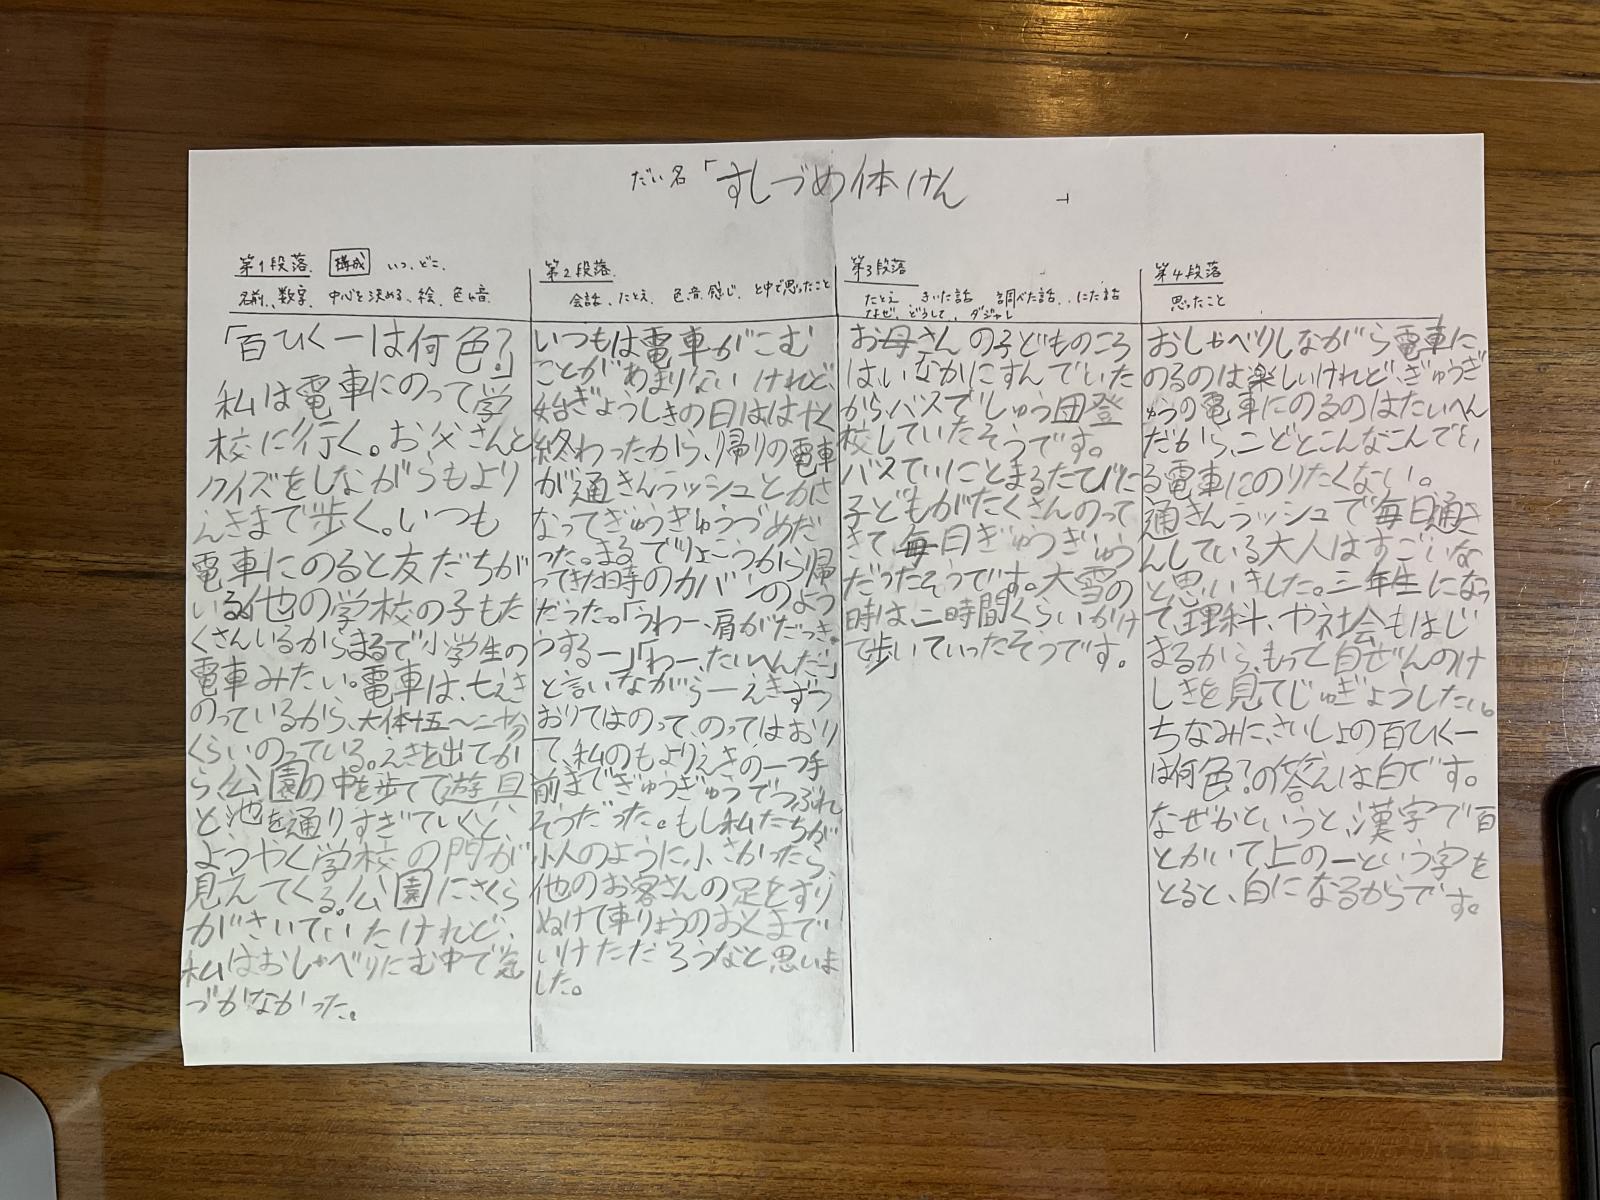 だい名「すしづめ体けん」
第1段落. 構成 いつ、どこ.
名前、数字、中心を決める、絵、色や音
「百ひく一は何色?」
私は電車にのって学
校に行く。お父さんと
クイズをしながらもより
えきまで歩く。いつも
電車にのると友だちが
いる他の学校の子もた
くさんいるからまるで小学生の
電車みたい。電車は、七えき
のっているから、大体十五〜二十分
くらいのっている。えきを出てか
ら公園の中を歩て遊具
と池を通りすぎていくと、
ようやく学校の門が
見えてくる。公園にさくら
がさいていたけれど、
私はおしゃべりにむ中で気
づかなかった。
第2段落.
会話、たとえ、色、音、感じ、と中で思ったこと
いつもは電車がこむ
ことがあまりないけれど、
始ぎょうしきの日ははやく
終わったから、帰りの電車
が通きんラッシュとかさ
なってぎゅうぎゅうづめだ
った。まるでりょこうから帰
ってきた時のカバンのよう
だった。「うわー、肩がだっき
うするー」「わー、たいへんだー」
と言いながら一えきずつ
おりてはのって、のってはおり
て、私のもよりえきの一つ手
前までぎゅうぎゅうでつぶれ
そうだった。もし私たちが
小人のように小さかったら、
他のお客さんの足をすり
ぬけて車りょうのおくまで
いけただろうなと思いま
した。
第3段落
たとえ きいた話 調べた話、にた話
なぜ、どうして、ダジャレ
お母さんの子どものころ
は、いなかにすんでいた
から、バスでしゅう団登
校していたそうです。
バスていにとまるたびに
子どもがたくさんのって
きて、毎日ぎゅうぎゅう
だったそうです。大雪の
時は、二時間くらいかけ
て歩いていったそうです。
第4段落
思ったこと
おしゃべりしながら電車に
のるのは楽しいけれど、ぎゅうぎ
ゅうの電車にのるのはたいへん
だから、二どとこんなこんでい
る電車にのりたくない。
通きんラッシュで毎日通き
んしている大人はすごいな
と思いました。三年生になっ
て、理科、や社会もはじ
まるから、もっと自ぜんのけ
しきを見てじゅぎょうしたい。
ちなみに、さいしょの百ひく一
は何色?の答えは白です。
なぜかというと、漢字で百
とかいて上の一という字を
とると、白になるからです。